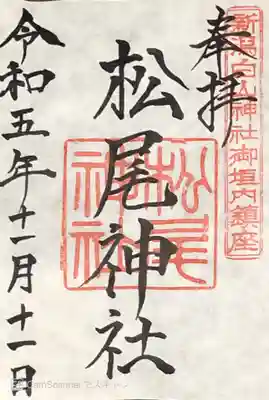 奉拝
新潟白山神社御垣内鎮座
松尾神社
松尾
神社
令和五年十一月十一日
CamScanner でスキャン